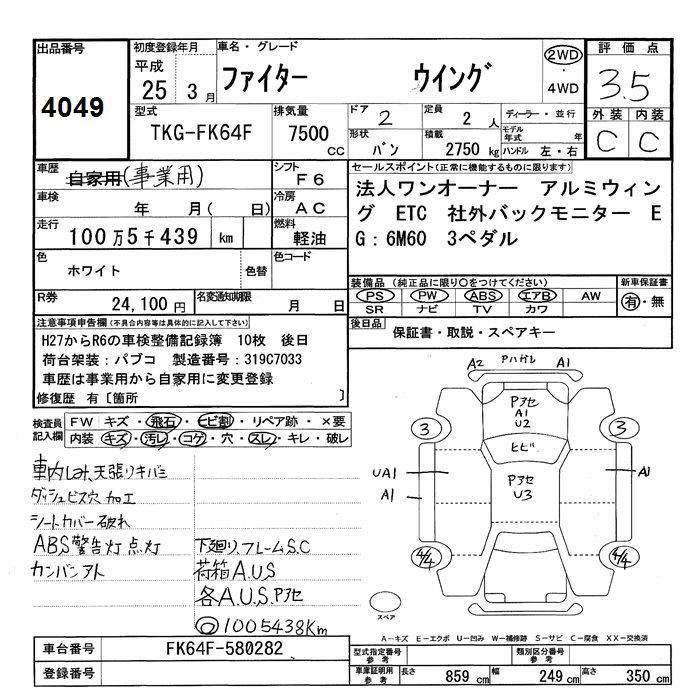 出品番号
4049
初度登録年月
平成
25 3月
車名・グレード
ファイター ウイング
2WD
・
4WD
評価点
3.5
外装 内装
C C
型式
TKG-FK64F
排気量
7500 cc
ドア 2
形状 バン
定員 2 人
積載 2750 kg
ディーラー・並行
モデル年式 年
ハンドル 左・右
車歴
自家用(事業用)
シフト
F6
車検
年 月( 日)
冷房
AC
走行
100万5千439 km
燃料
軽油
色
ホワイト
色替
色コード
R券
24,100円
名変通知期限
月 日
セールスポイント(正常に機能するものに限ります)
法人ワンオーナー アルミウィン
グ ETC 社外バックモニター E
G:6M60 3ペダル
装備品(純正品に限り○をつけてください)
PS PW ABS エアB AW
SR ナビ TV カワ
新車保証書
有・無
後日品
保証書・取説・スペアキー
注意事項申告欄(不具合内容等は具体的に記入して下さい)
H27からR6の車検整備記録簿 10枚 後日
荷台架装:パブコ 製造番号:319C7033
車歴は事業用から自家用に変更登録
修復歴 有〔箇所 〕
検査員記入欄
FW キズ・飛石・ヒビ割・リペア跡・×要
内装 キズ・汚レ・コゲ・穴・スレ・キレ・破レ
車内しみ、天張りキバミ
ダッシュビス穴 加工
シートカバー破れ
ABS警告灯点灯
カンバンアト
下廻り、フレームS.C
荷箱A.U.S
各A.U.S.Pアセ
◎1005438Km
A2 Pハガレ A1
Pアセ
A1
U2
3 3
ヒビ
UA1
A1
Pアセ
U3
A1
4/4 4/4
スペア
A-キズ E-エクボ U-凹み W-補修跡 S-サビ C-腐食 XX-交換済
車台番号
FK64F-580282
登録番号
型式指定番号
参考
類別区分番号
参考
車庫証明用
参考
長さ 859 cm 幅 249 cm 高さ 350 cm